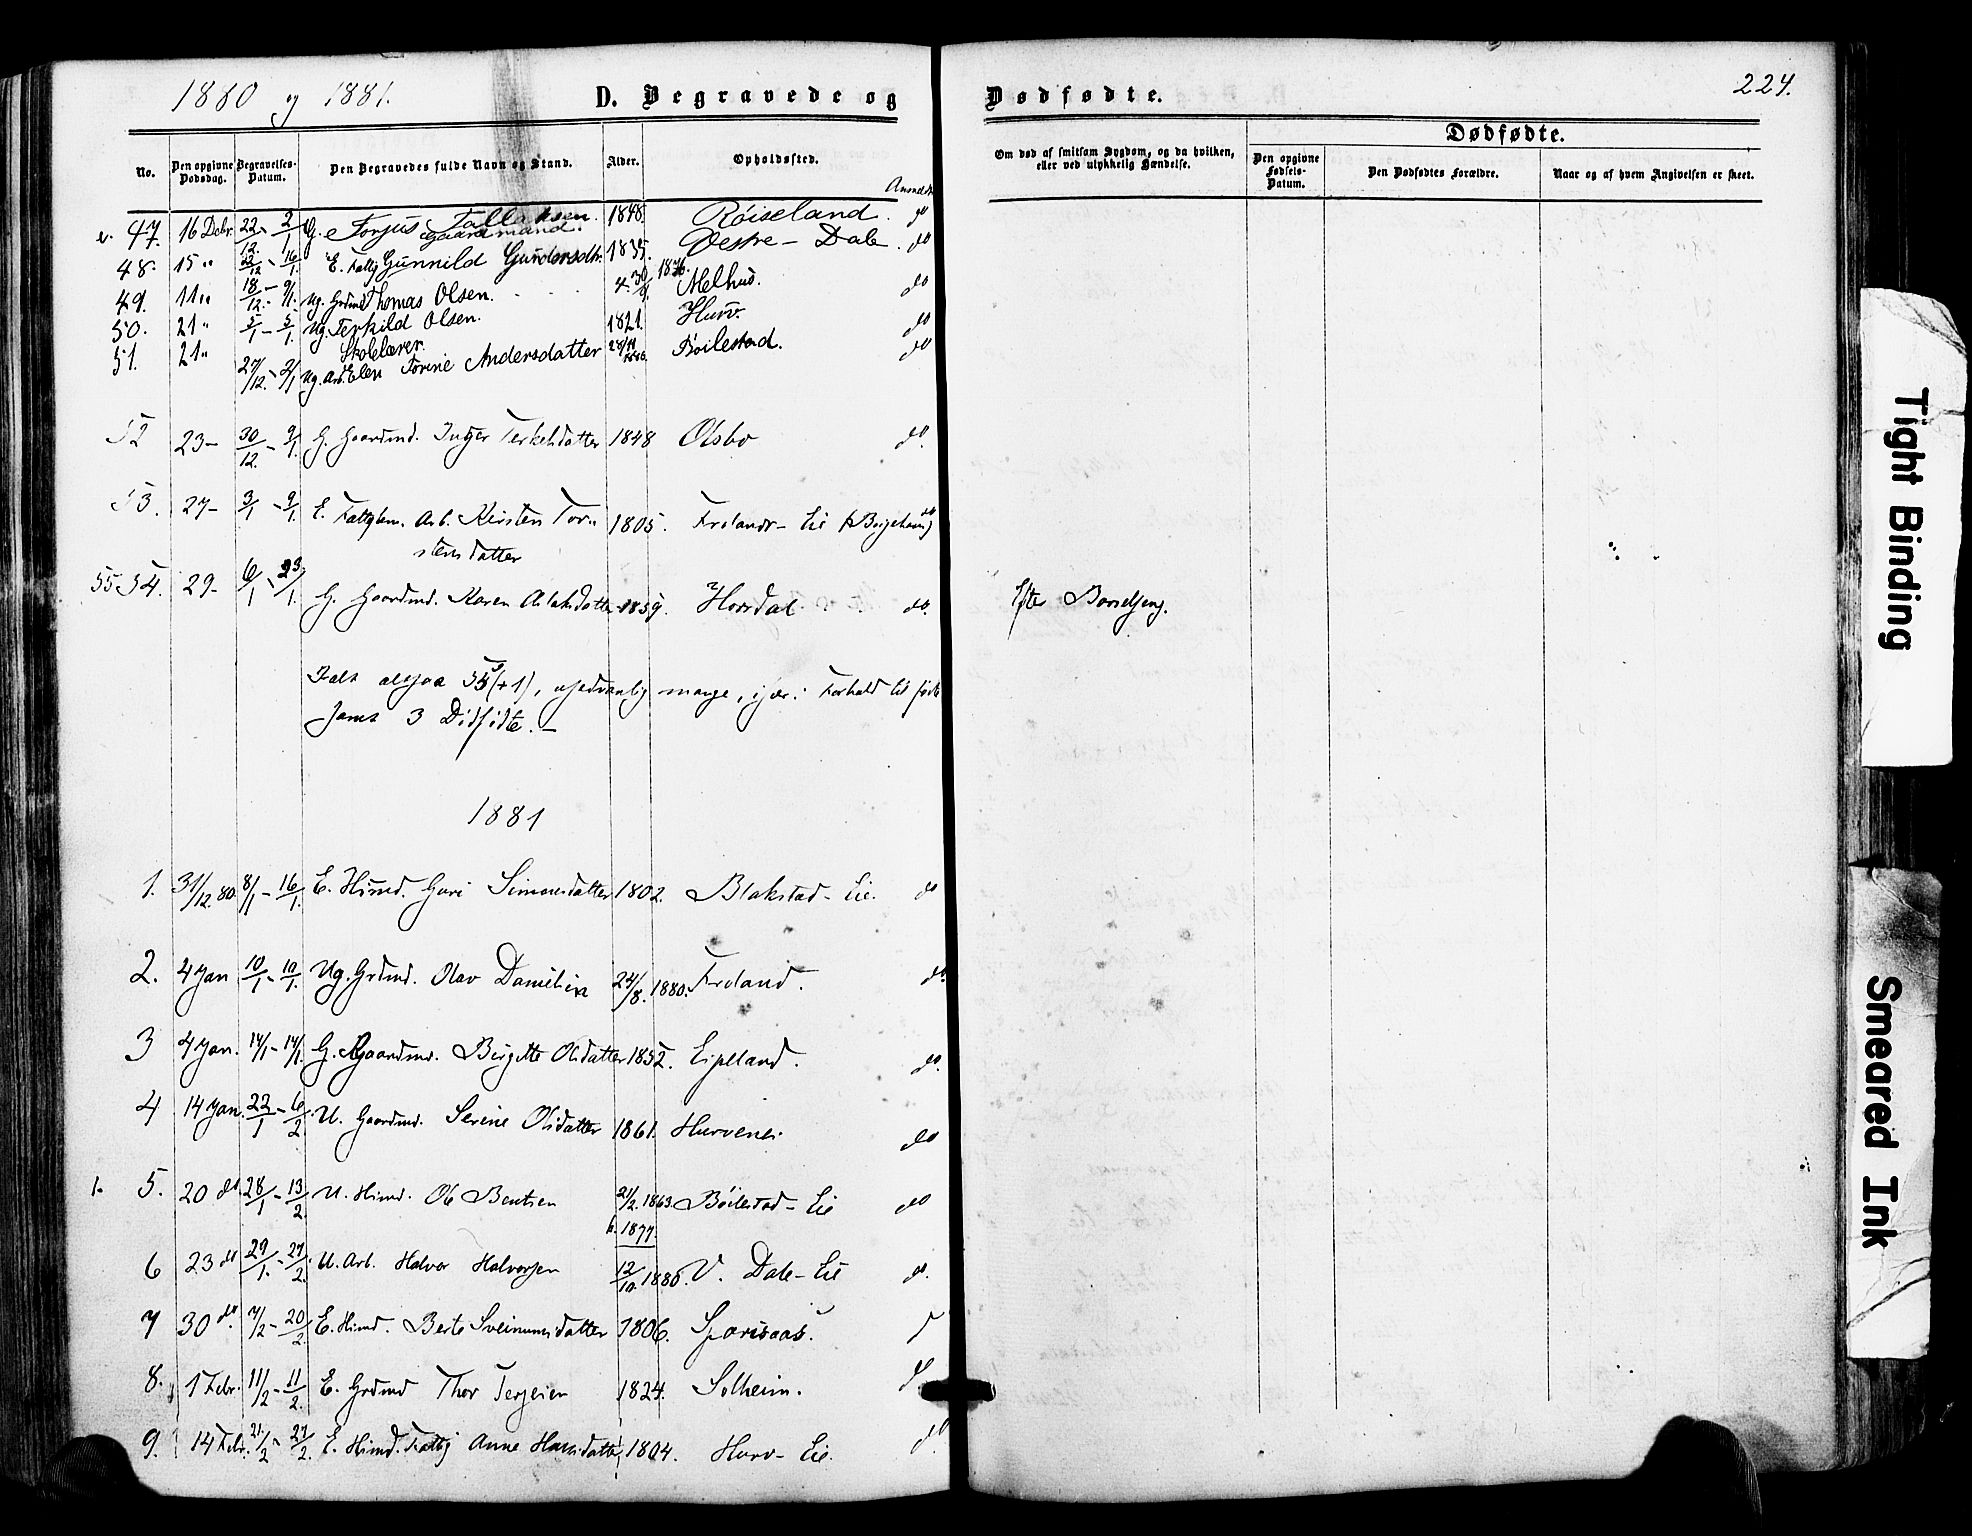 1880 og 1881.
D. Begravede og
Dødfødte.
224.
No.
Den opgivne Dødsdag.
Begravelses-Datum.
Den Begravedes fulde Navn og Stand.
Alder.
Opholdssted.
Om død af smitsom Sygdom, og da hvilken, eller ved ulykkelig Hændelse.
Dødfødte.
Den opgivne Fødsels-Datum.
Den Dødfødtes Forældre.
Naar og af hvem Angivelsen er skeet.
47. 16 Debr. 22/12 - 2/1 G. Torjus Tallaksen. 1848. Røiseland. do
Gaardmand.
48. 15 " 22/12 - 16/1. E. Fattig Gunnild Gundersdtr. 1835. Vestre - Dale. do
49. 11 " 18/12 - 9/1. Ug. Grdmd Thomas Olsen. 30/9 1876. Melhus. do
50. 21 " 5/1 - 5/1. Ug. Terkild Olsen. 1821. Hurv. do
Skolelærer.
51. 21 " 27/12 - 2/1 Ug. Arb. Elen Torine Andersdatter Bøilestad. do
52 23 - 30/12. - 9/1. G. Gaardmd. Inger Terkelsdatter 1848 Olsbo do.
53. 27 - 3/1 - 9/1. E. Fattiglem. Arb. Kirsten Tor-
stensdatter 1805. Frolands - Eie do
55 54. 29 - 6/1 - 23/1. G. Gaardmd. Karen Aslaksdatter 1859. Hovsdal do. Efter Barselseng.
Ialt altsaa 55 (+1), usedvanlig mange, især i Forhold til fødte
samt 3 Dødfødte. -
1881
1. 31/12 80. 8/1 - 16/1. E. Himd. Guri Simonsdatter 1802. Blakstad - Eie. do
2. 4 Jan 10/1 - 10/1. Ug. Grdmd. Olav Danielsen 24/8. 1880. Froland. do.
3 4 Jan. 14/1 - 14/1. G. Gaardmd. Birgitte Olsdatter 1852. Eipeland. do.
4 14 Jan. 22/1 - 6/2 U. Gaardmd. Serine Olsdatter 1861. Hurvenes do
1. 5. 20 do 28/1 - 13/2. U. Himd. Ole Bentsen 21/2. 1863. Bøilestad - Eie do
k. 1877.
6 23 do 29/1. - 27/2. U. Arb. Halvor Halvorsen 12/10. 1880. V. Dale - Eie do.
7 30 do. 7/2 - 20/2. E. Himd. Berte Sveinunsdatter 1806. Sparsaas.
8. 1 Febr. 11/2 - 11/2. E. Grdmd Thor Terjesen 1824. Solheim. do
9. 14 Febr. 21/2 - 27/2. E. Himd. Fattig Anne Hansdatter 1804. Hurv - Eie. do.
Tight Binding
Smeared Ink